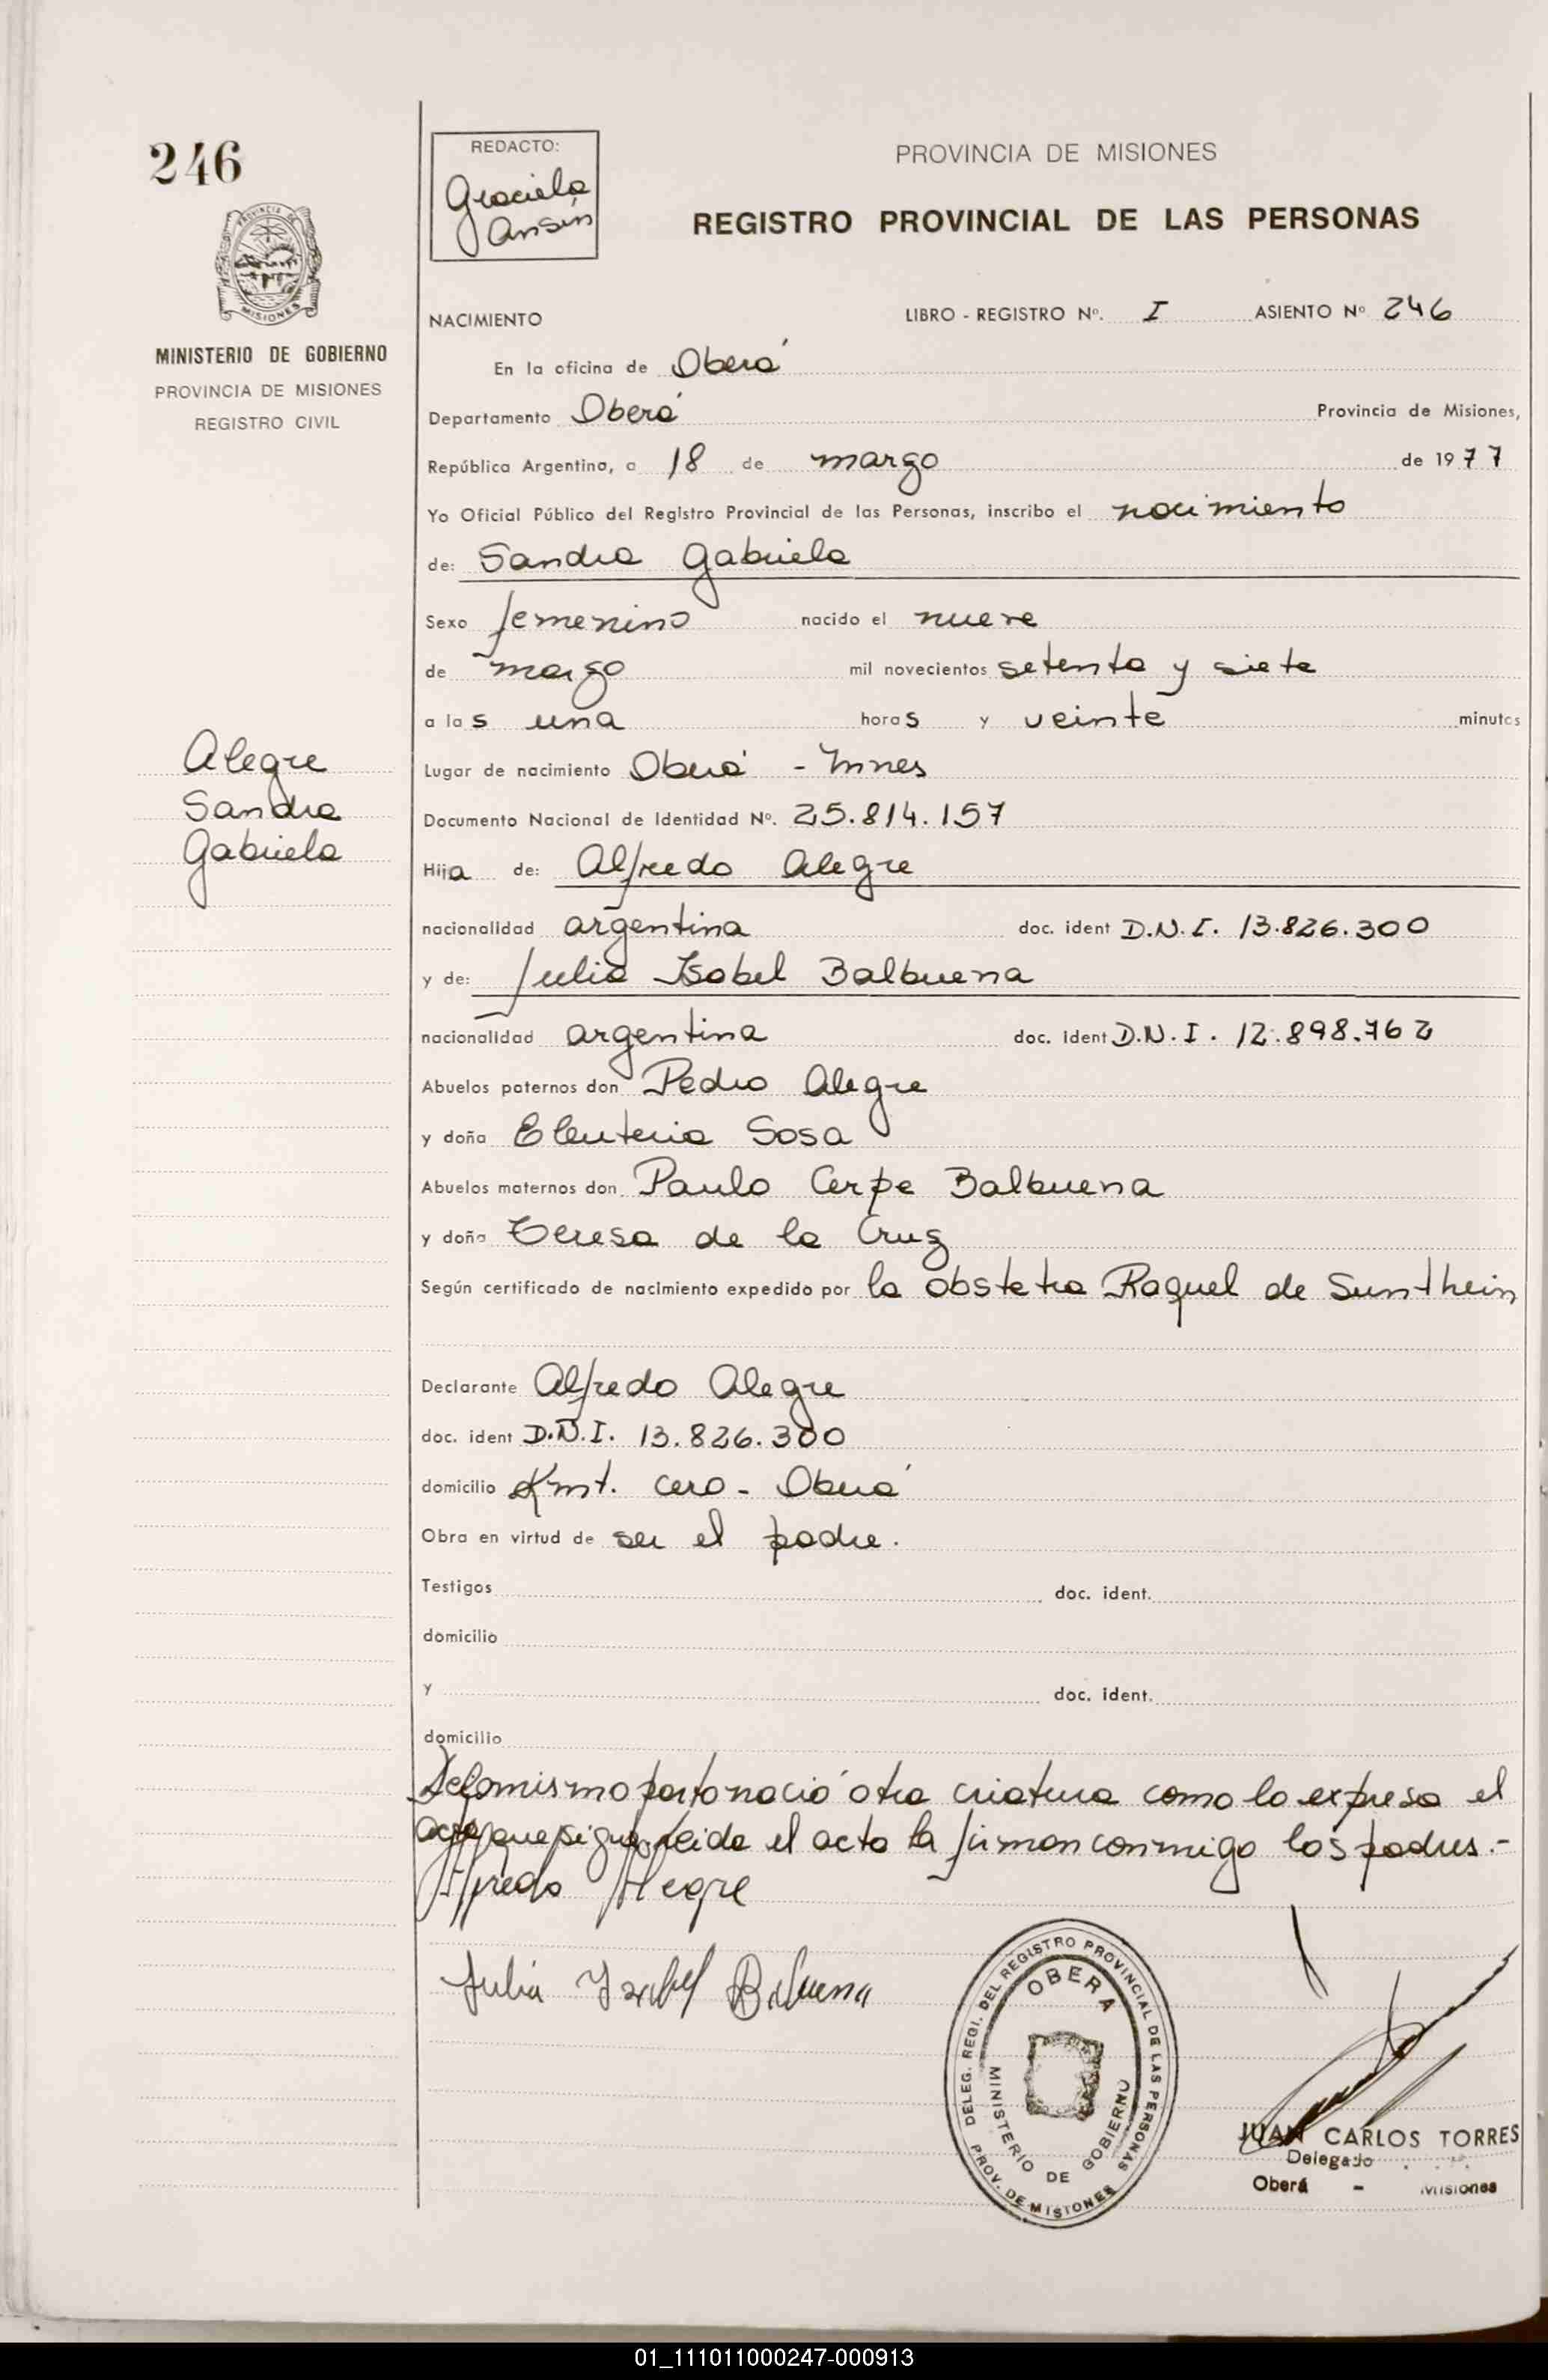 246
MINISTERIO DE GOBIERNO
PROVINCIA DE MISIONES
REGISTRO CIVIL
Alegre
Sandra
Gabriela
REDACTO:
Graciela
Ansín
PROVINCIA DE MISIONES
REGISTRO PROVINCIAL DE LAS PERSONAS
NACIMIENTO LIBRO - REGISTRO Nº. I ASIENTO Nº 246
En la oficina de Oberá
Departamento Oberá Provincia de Misiones,
República Argentina, a 18 de marzo de 1977
Yo Oficial Público del Registro Provincial de las Personas, inscribo el nacimiento
de: Sandra Gabriela
Sexo femenino nacido el nueve
de marzo mil novecientos setenta y siete
a las una horas y veinte minutos
Lugar de nacimiento Oberá - Mnes
Documento Nacional de Identidad Nº. 25.814.157
Hija de: Alfredo Alegre
nacionalidad argentina doc. ident D.N.I. 13.826.300
y de: Julia Isabel Balbuena
nacionalidad argentina doc. ident D.N.I. 12.898.762
Abuelos paternos don Pedro Alegre
y doña Eleuteria Sosa
Abuelos maternos don Paulo Cerpe Balbuena
y doña Teresa de la Cruz
Según certificado de nacimiento expedido por la obstetra Raquel de Sunthein
Declarante Alfredo Alegre
doc. ident D.N.I. 13.826.300
domicilio Kmt. cero - Oberá
Obra en virtud de ser el padre.
Testigos doc. ident.
domicilio
y doc. ident.
domicilio
Del mismo parto nació otra criatura como lo expresa el
acta que sigue, leida el acto la firman conmigo los padres.-
Alfredo Alegre
Julia Ysabel Balbuena
DELEG. REGI. DEL REGISTRO PROVINCIAL DE LAS PERSONAS
OBERA
MINISTERIO DE GOBIERNO
PROV. DE MISIONES
JUAN CARLOS TORRES
Delegado
Oberá - Misiones
01_111011000247-000913